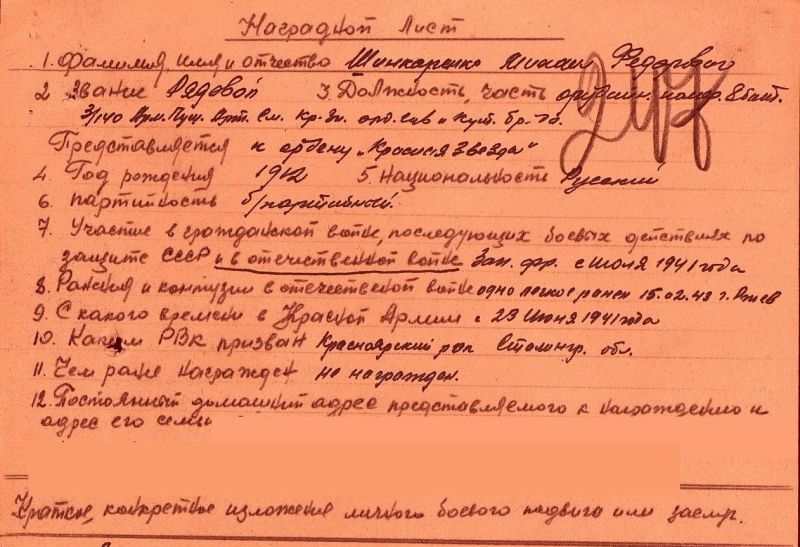 Наградной Лист
1. Фамилия, имя и отчество Шинкаренко Михаил Федорович
2 Звание Рядовой 3. Должность, часть орудийн. номер 8 бат.
3/140 Арм. Пуш. Арт. См. Кр. Зн. орд. Сув и Кут. бр-да.
Представляется к ордену „Красная Звезда"
4. Год рождения 1912 5. Национальность Русский
6. партийность б/партийный.
7. Участие в гражданской войне, последующих боевых действиях по
защите СССР и в отечественной войне Зап. фр. с июля 1941 года
8. Ранения и контузии в отечественной войне одно легкое ранен 15.02.43 г. Ржев
9. С какого времени в Красной Армии с 23 Июня 1941 года
10. Каким РВК призван Красноярский рвк Сталингр. обл.
11. Чем ранее награжден не награжден.
12. Постоянный домашний адрес представляемого к награждению и
адрес его семьи
Краткое, конкретное изложение личного боевого подвига или заслуг.